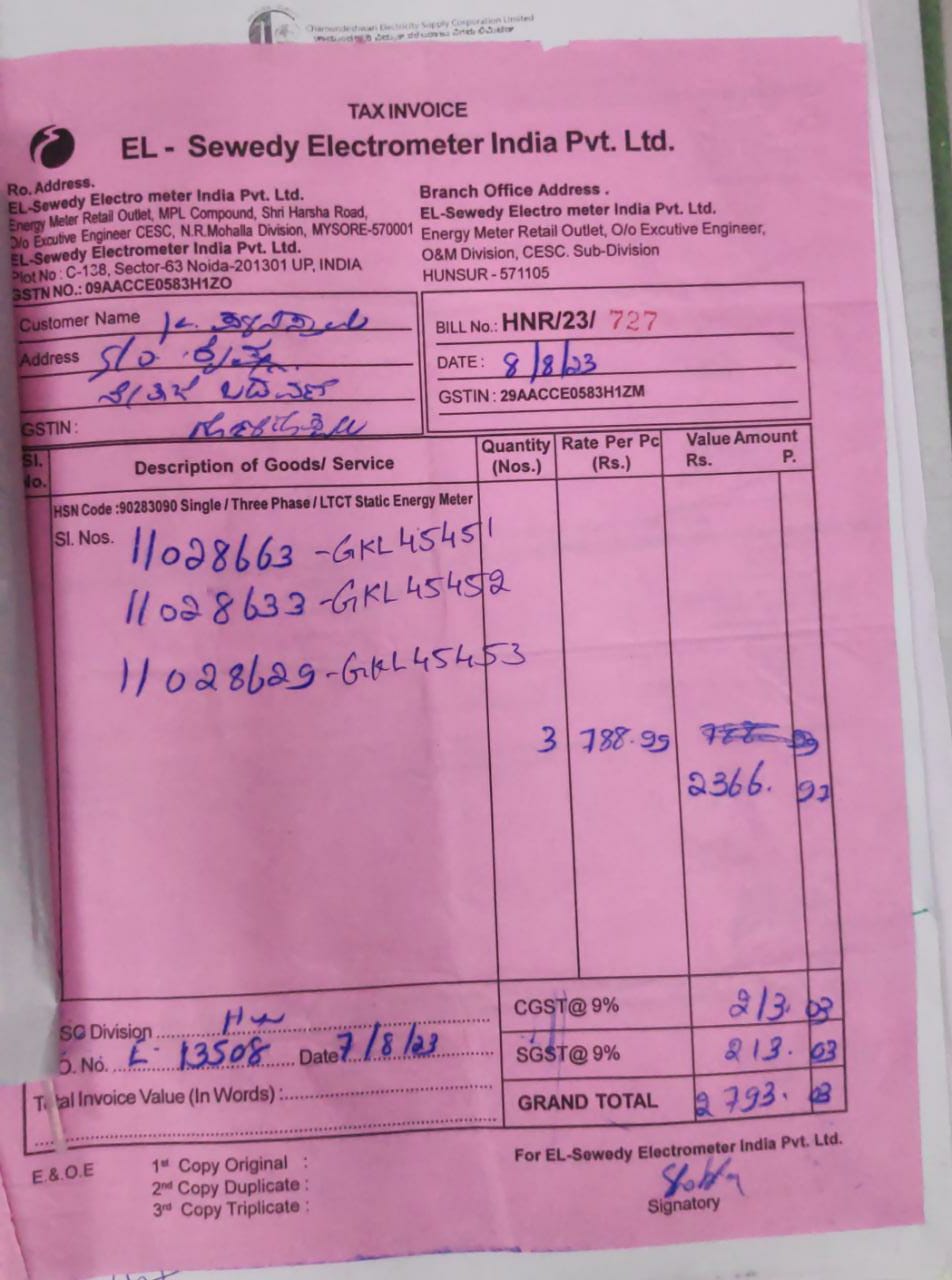 Chamundeshwari Electricity Supply Corporation Limited
TAX INVOICE
EL - Sewedy Electrometer India Pvt. Ltd.
Ro. Address.
EL-Sewedy Electro meter India Pvt. Ltd.
Energy Meter Retail Outlet, MPL Compound, Shri Harsha Road,
O/o Excutive Engineer CESC, N.R.Mohalla Division, MYSORE-570001
EL-Sewedy Electrometer India Pvt. Ltd.
Plot No : C-138, Sector-63 Noida-201301 UP, INDIA
GSTN NO.: 09AACCE0583H1ZO
Branch Office Address .
EL-Sewedy Electro meter India Pvt. Ltd.
Energy Meter Retail Outlet, O/o Excutive Engineer,
O&M Division, CESC. Sub-Division
HUNSUR - 571105
Customer Name
Address S/o.
GSTIN :
BILL No.: HNR/23/ 727
DATE : 8/8/23
GSTIN : 29AACCE0583H1ZM
Sl. No. Description of Goods/ Service Quantity (Nos.) Rate Per Pc (Rs.) Value Amount Rs. P.
HSN Code :90283090 Single / Three Phase / LTCT Static Energy Meter
Sl. Nos. 11028663 -GKL45451
11028633 -GKL45452
11028629 -GKL45453
3 788.99
2366. 97
CGST@ 9% 213. 03
SGST@ 9% 213. 03
GRAND TOTAL 2793. 03
SG Division
O. No. 13508 Date 7/8/23
Total Invoice Value (In Words) :
E.&.O.E
1st Copy Original :
2nd Copy Duplicate :
3rd Copy Triplicate :
For EL-Sewedy Electrometer India Pvt. Ltd.
Signatory